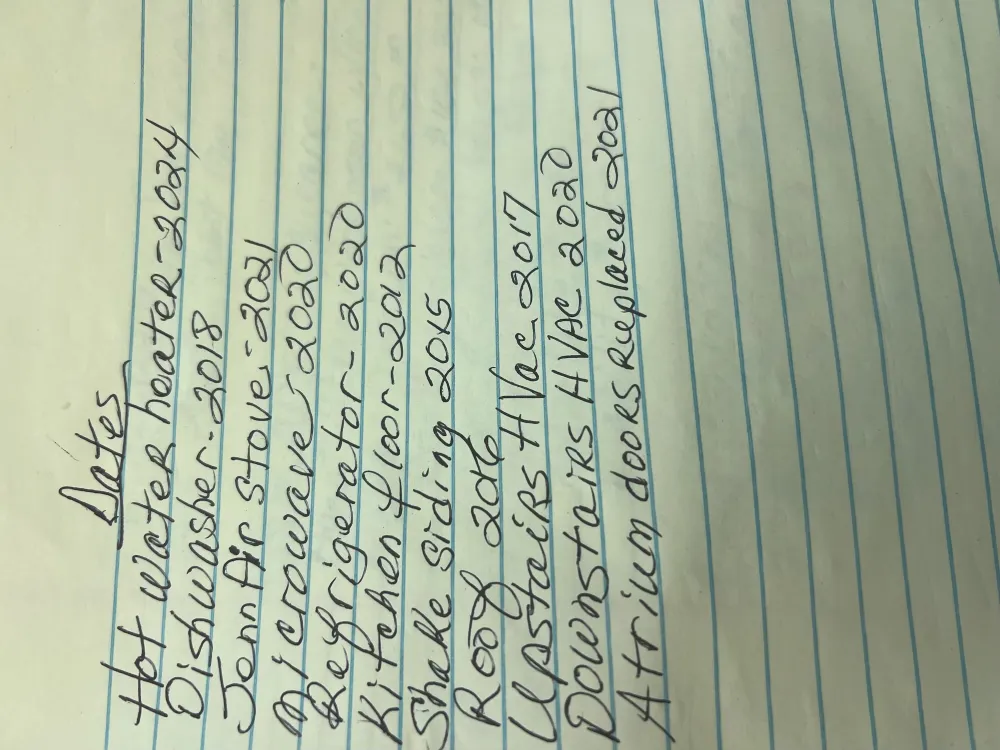 Dates
Hot water heater-2024
Dishwasher-2018
JennAir stove-2021
Microwave-2020
Refrigerator-2020
Kitchen floor-2012
Shake siding 2015
Roof 2016
Upstairs HVac 2017
Downstairs HVAC 2020
Atrium doors replaced 2021